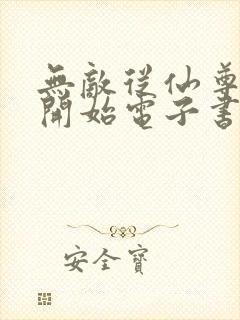 無敵從仙尊
開始電子書
安全寶